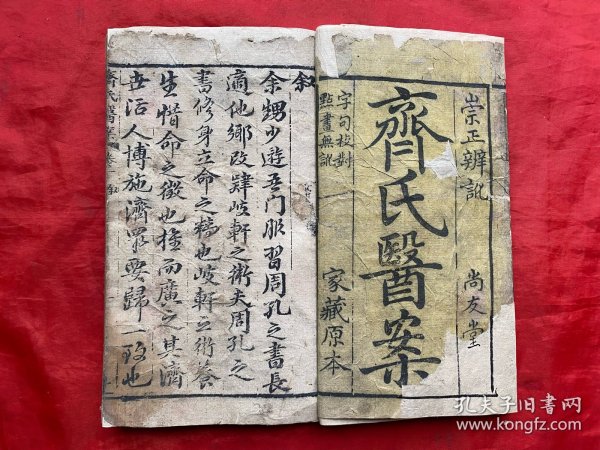 崇正辨訛
尚友堂
齊氏醫案
字句校對
點畫無訛
家藏原本
叙
余甥少遊吾门服習周孔之書長
適他鄉改肄岐軒之術夫周孔之
書修身立命之稿也岐軒之術養
生惜命之徵也推而廣之其濟
世活人博施濟眾要歸一致也
齊氏醫案
叙
孔夫子旧书网
www.kongfz.com